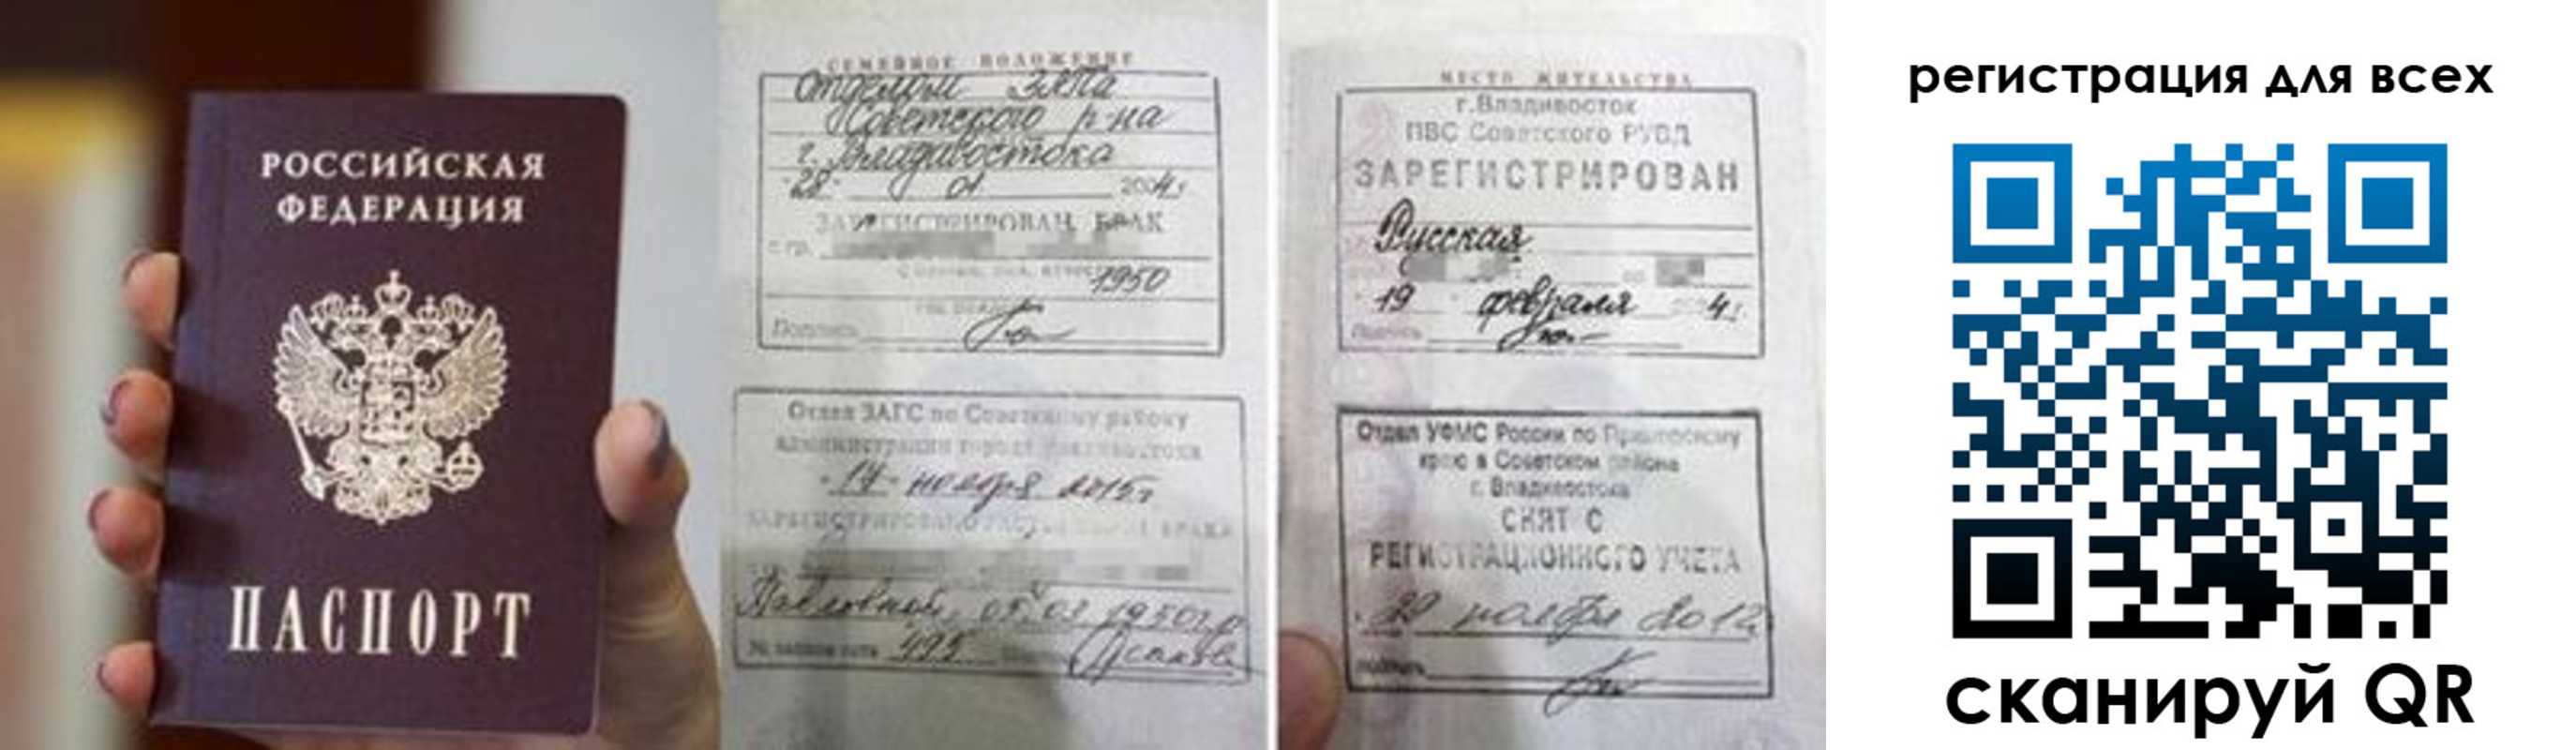 РОССИЙСКАЯ
ФЕДЕРАЦИЯ
ПАСПОРТ
СЕМЕЙНОЕ ПОЛОЖЕНИЕ
Отделом ЗАГСа
Советского р-на
г. Владивостока
"28" 01 2004 г.
ЗАРЕГИСТРИРОВАН БРАК
с гр.
1950
Подпись
Отдел ЗАГС по Советскому району
администрации города Владивостока
"17" ноября 2015г
Павловной, 05.03.1950г.р
№ 495
МЕСТО ЖИТЕЛЬСТВА
г.Владивосток
ПВС Советского РУВД
ЗАРЕГИСТРИРОВАН
Русская
19 февраля 4г
Подпись
Отдел УФМС России по Приморскому
краю в Советском районе
г. Владивостока
СНЯТ С
РЕГИСТРАЦИОННОГО УЧЕТА
ноября 2012
подпись
регистрация для всех
сканируй QR